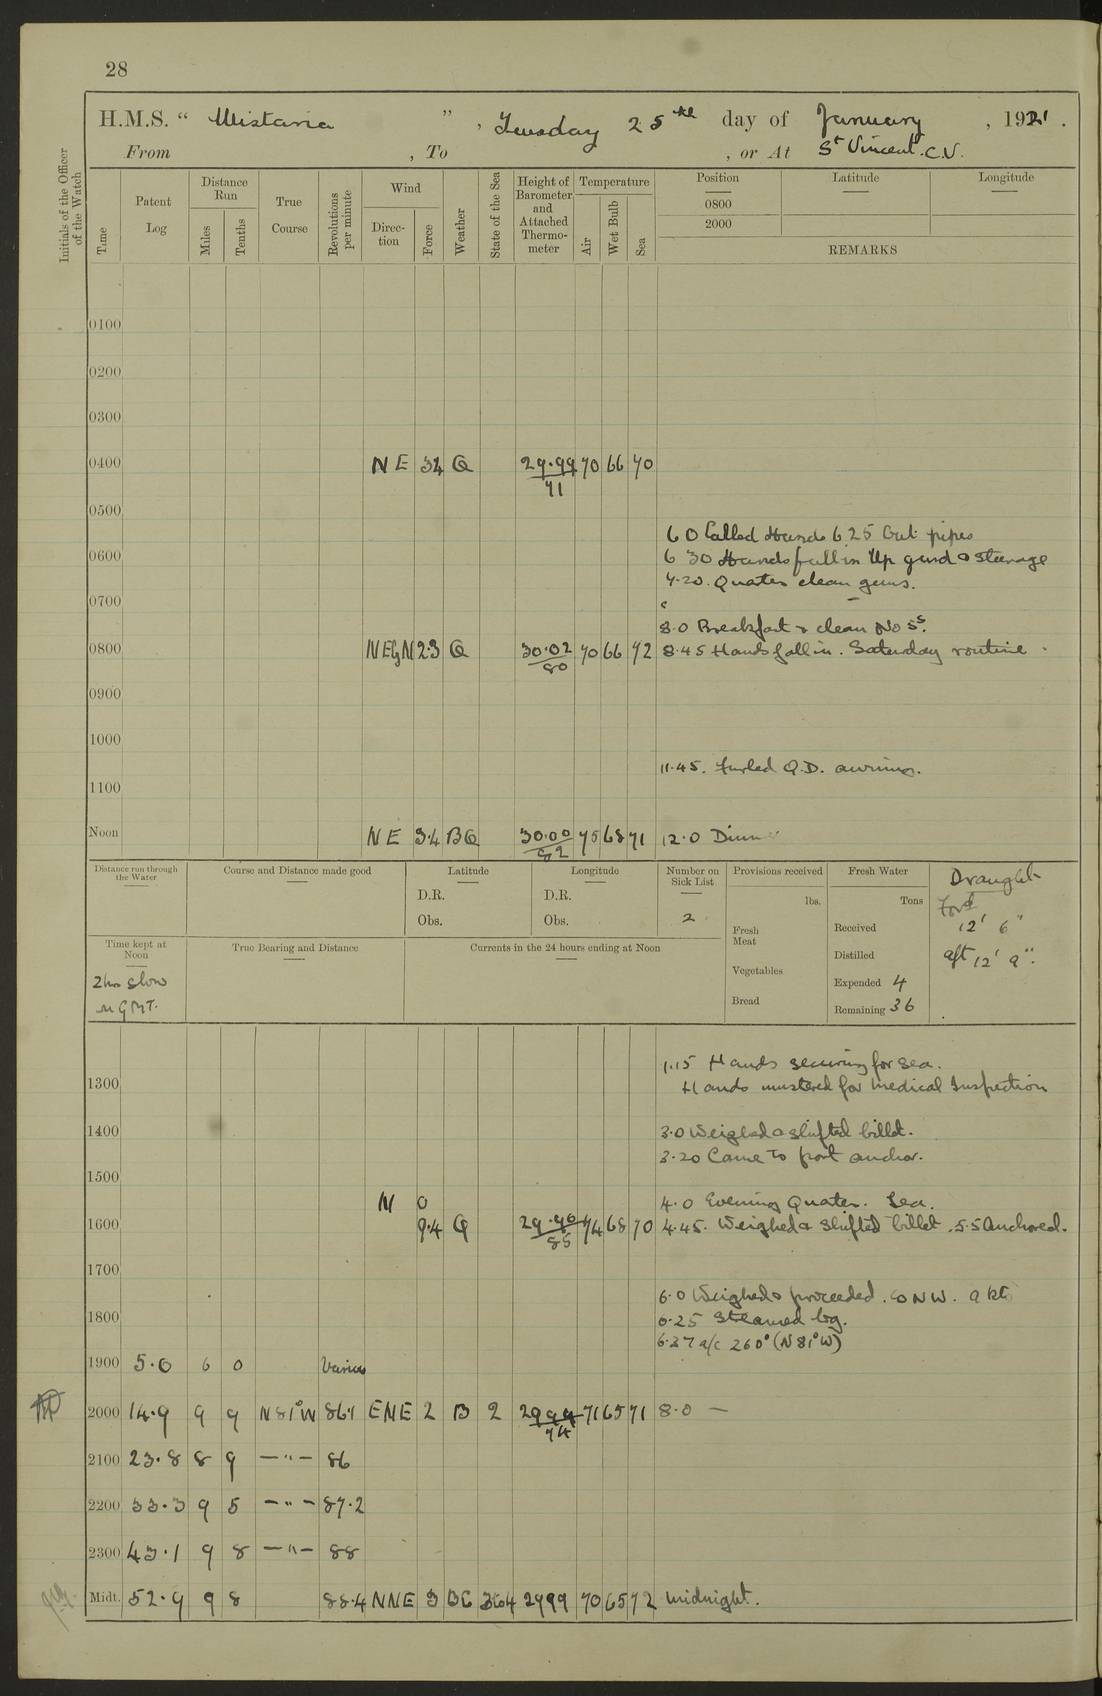 28
H.M.S. “ Wistaria ” , Tuesday 25th day of January , 1921 .
From , To , or At St Vincent. C.V.
Initials of the Officer of the Watch
Time
Patent Log
Distance Run
Miles
Tenths
True Course
Revolutions per minute
Wind
Direction
Force
Weather
State of the Sea
Height of Barometer and Attached Thermometer
Temperature
Air
Wet Bulb
Sea
Position
0800
2000
Latitude
Longitude
REMARKS
0100
0200
0300
0400 NE 34 Q 29.99 70 66 70
71
0500
6 0 Called Hands 6.25 Out pipes
0600 6 30 Hands fall in Up guard & Steerage
7.20. Quarters clean guns.
0700
8.0 Breakfast & clean No 5s.
0800 NEbyN 2.3 Q 30.02 70 66 72 8.45 Hands fall in. Saturday routine.
80
0900
1000
11.45. Furled Q.D. awning.
1100
Noon NE 3.4 BQ 30.00 75 68 71 12.0 Dinner
82
Distance run through the Water
Course and Distance made good
Latitude
D.R.
Obs.
Longitude
D.R.
Obs.
Number on Sick List
2
Provisions received
lbs.
Fresh Meat
Vegetables
Bread
Fresh Water
Tons
Received
Distilled
Expended 4
Remaining 36
Draught
Ford
12' 6"
aft 12' 9".
Time kept at Noon
2 hrs slow
on GMT.
True Bearing and Distance
Currents in the 24 hours ending at Noon
1.15 Hands securing for sea.
1300 Hands mustered for Medical Inspection
1400 3.0 Weighed & shifted billet.
3.20 Came to port anchor.
1500
N 0 4.0 Evening Quarters. Sea.
1600 Q 68 70 4.45. Weighed & shifted billet. 5.5 Anchored.
85
1700
6.0 Weighed & proceeded. Co NW. 9 kts
1800 6.25 Streamed log.
6.37 a/c 260° (N 81° W)
1900 5.0 6 0 Various
2000 14.9 9 9 N 81° W 86.1 ENE 2 B 2 2999 71 65 71 8.0 —
74
2100 23.8 8 9 — " — 86
2200 33.3 9 5 — " — 87.2
2300 43.1 9 8 — " — 88
Midt. 52.9 9 8 88.4 NNE 3 BC 364 2999 70 65 72 Midnight.